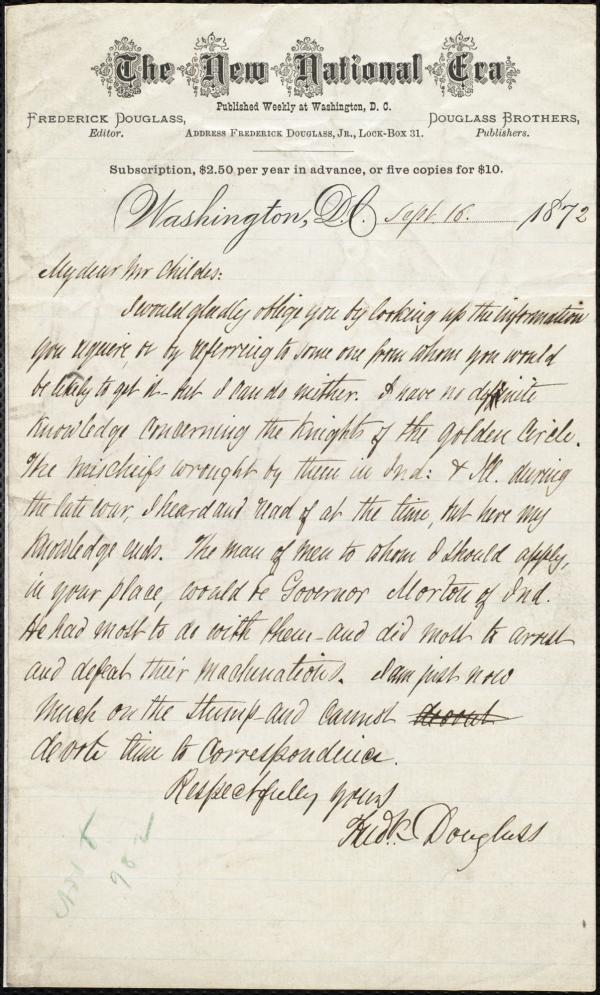 The New National Era
Published Weekly at Washington, D. C.
FREDERICK DOUGLASS,
Editor.
ADDRESS FREDERICK DOUGLASS, JR., LOCK-BOX 31.
DOUGLASS BROTHERS,
Publishers.
Subscription, $2.50 per year in advance, or five copies for $10.
Washington, D.C. Sept 16. 1872
My dear Mr Childs:
I would gladly oblige you by looking up the information
you require, or by referring to some one from whom you would
be likely to get it - but I can do neither. I have no definite
knowledge concerning the Knights of the Golden Circle.
The mischiefs wrought by them in Ind: & Ill. during
the late war, I heard and read of at the time, but here my
knowledge ends. The man of men to whom I should apply,
in your place, would be Governor Morton of Ind.
He had most to do with them - and did most to arrest
and defeat their machinations. I am just now
much on the stump - and cannot
devote time to correspondence.
Respectfully yours
Fredk Douglass